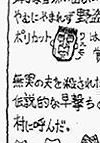 やむにやまれず野盗
ポリカット、
無実の夫を殺された
伝説的な早撃ち
村に呼んだ。